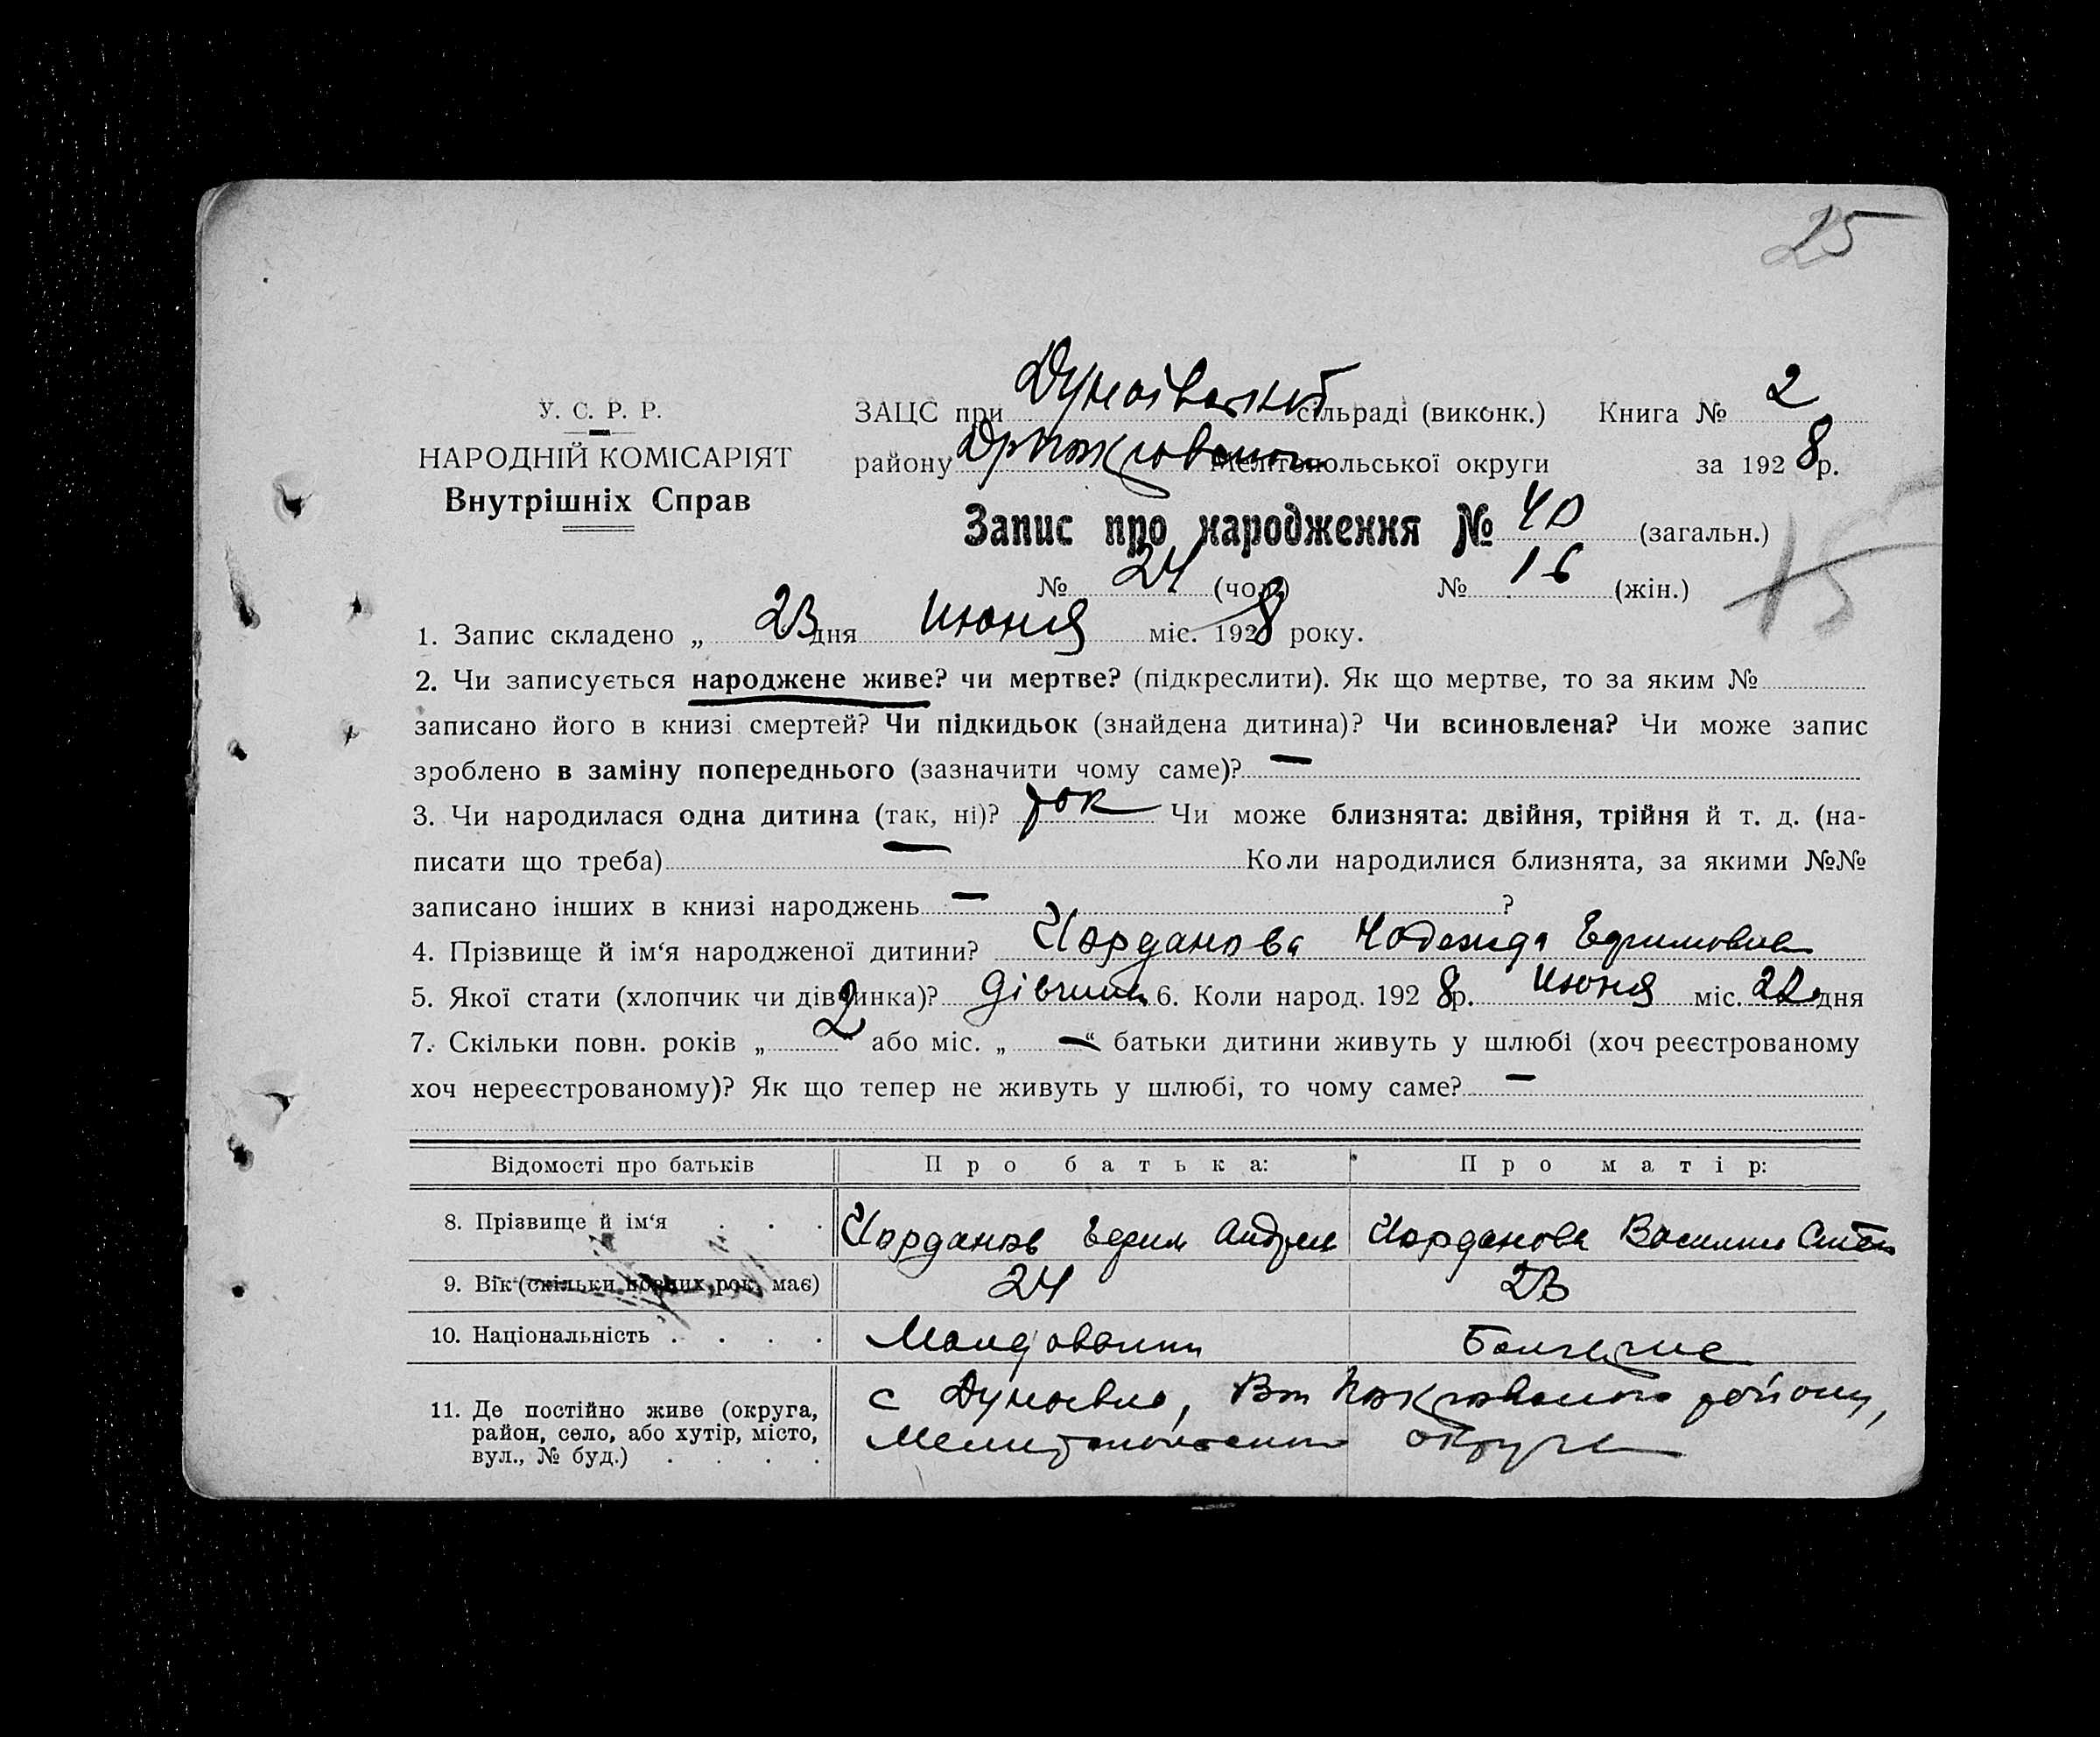 25
У. С. Р. Р.
НАРОДНІЙ КОМІСАРІЯТ
Внутрішніх Справ
ЗАЦС при Дунаївській сільраді (виконк.) Книга № 2
району Мелітопольської округи за 1928 р.
Запис про народження № 40 (загальн.)
№ 24 (чол.) № 16 (жін.)
15
1. Запис складено „ 23 дня Июня міс. 1928 року.
2. Чи записується народжене живе? чи мертве? (підкреслити). Як що мертве, то за яким №
записано його в книзі смертей? Чи підкидьок (знайдена дитина)? Чи всиновлена? Чи може запис
зроблено в заміну попереднього (зазначити чому саме)? —
3. Чи народилася одна дитина (так, ні)? так Чи може близнята: двійня, трійня й т. д. (на-
писати що треба) — Коли народилися близнята, за якими №№
записано інших в книзі народжень — ?
4. Прізвище й ім‘я народженої дитини? Иорданова Надежда Ефимовна
5. Якої стати (хлопчик чи дівчинка)? дівчинка 6. Коли народ. 1928 р. Июня міс. 22 дня
7. Скільки повн. років „ 2 “ або міс. „ — “ батьки дитини живуть у шлюбі (хоч реєстрованому
хоч нереєстрованому)? Як що тепер не живуть у шлюбі, то чому саме? —
Відомості про батьків Про батька: Про матір:
8. Прізвище й ім‘я . . . Иорданов Ефим Андрее Иорданова Василиса
9. Вік (скільки повних рок. має) 24 23
10. Національність . . . . Молдованин Болгарка
11. Де постійно живе (округа, район, село, або хутір, місто, вул., № буд.) . . . . с Дунаевка, Покровского району,
Мелитопольской округи